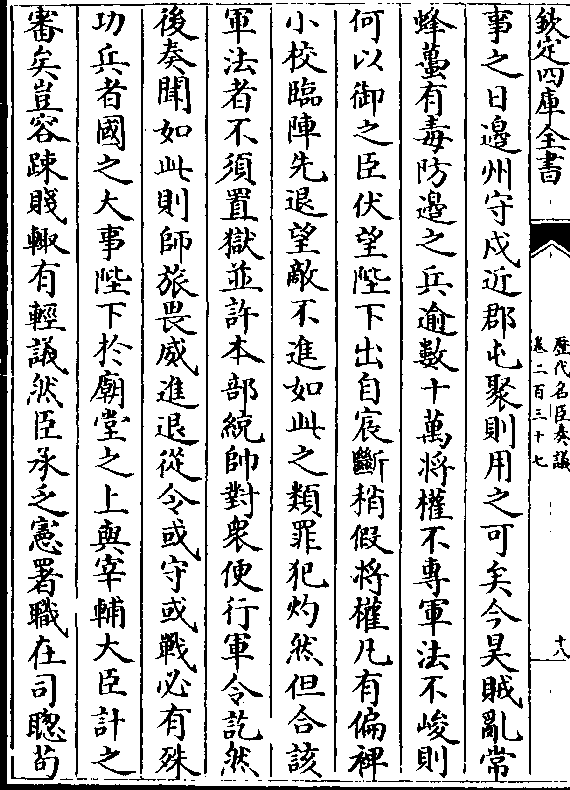 欽定四庫全書
歷代名臣奏議
卷二百三十七
十八
事之日邊州守戍近郡屯聚則用之可矣今昊賊亂常
蜂蠆有毒防邊之兵逾數十萬將權不專軍法不峻則
何以御之臣伏望陛下出自宸斷稍假將權凡有偏裨
小校臨陣先退望敵不進如此之類罪犯灼然但合該
軍法者不須置獄並許本部統帥對衆便行軍令訖然
後奏聞如此則師旅畏威進退從令或守或戰必有殊
功兵者國之大事陛下於廟堂之上與宰輔大臣計之
審矣豈容踈賤輙有輕議然臣承乏憲署職在司聰苟